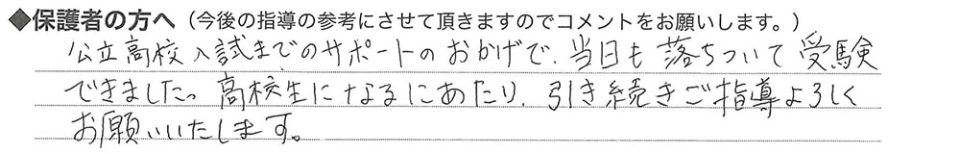 ◆保護者の方へ（今後の指導の参考にさせて頂きますのでコメントをお願いします。）
公立高校入試までのサポートのおかげで、当日も落ちついて受験
できました。高校生になるにあたり、引き続きご指導よろしく
お願いいたします。